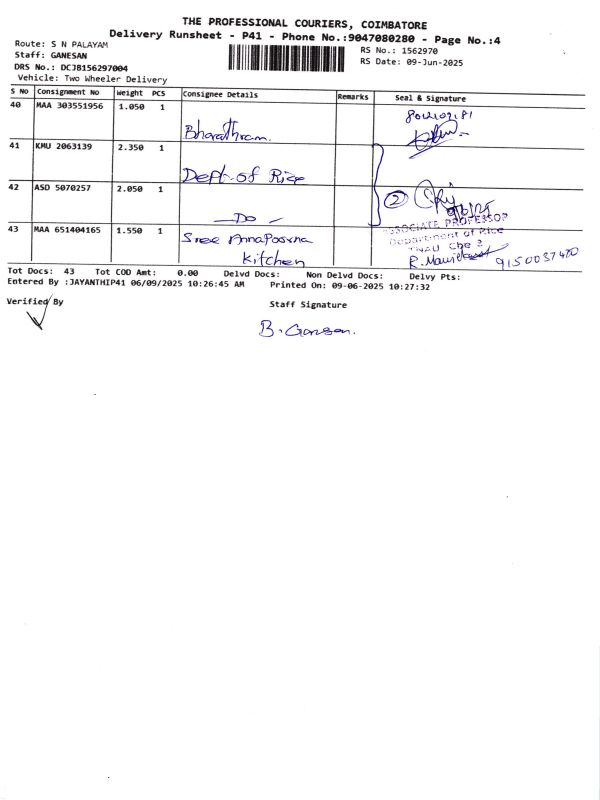 THE PROFESSIONAL COURIERS, COIMBATORE
Delivery Runsheet - P41 - Phone No.:9047080280 - Page No.:4
Route: S N PALAYAM
Staff: GANESAN
DRS No.: DCJB156297004
Vehicle: Two Wheeler Delivery
RS No.: 1562970
RS Date: 09-Jun-2025
S No Consignment No Weight PCS Consignee Details Remarks Seal & Signature
40 MAA 303551956 1.050 1
Bharathram
41 KMU 2063139 2.350 1
Dept. of Rice
42 ASD 5070257 2.050 1
— Do —
2
ASSOCIATE PROFESSOR
Department of Rice
TNAU Cbe 3
43 MAA 651404165 1.550 1
Sree Annapoorna
Kitchen
9150037480
Tot Docs: 43 Tot COD Amt: 0.00 Delvd Docs: Non Delvd Docs: Delvy Pts:
Entered By :JAYANTHIP41 06/09/2025 10:26:45 AM Printed On: 09-06-2025 10:27:32
Verified By
Staff Signature
B. Ganesan.